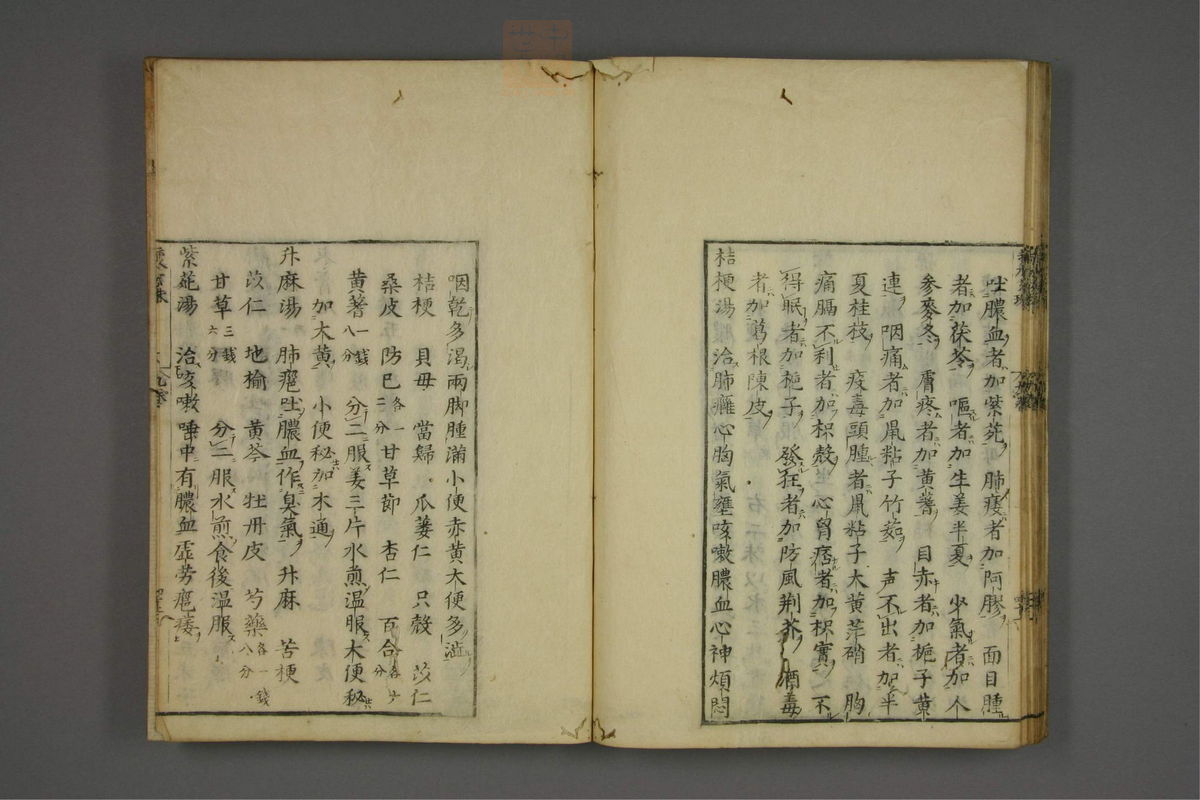 吐膿血者加紫苑 肺痿者加阿膠 面目腫
者加茯苓 嘔者加生姜半夏 少氣者加人
參麥冬 膚疼者加黄蓍 目赤者加梔子黄
連 咽痛者加鼠粘子竹茹 声不出者加半
夏桂枝 疫毒頭腫者鼠粘子大黄芒硝 胸
痛膈不利者加枳殻 心胷痞者加枳實 不
得眠者加梔子 發狂者加防風荆芥 酒毒
者加葛根陳皮
桔梗湯 治肺癰心胸氣壅咳嗽膿血心神煩悶
咽乾多渇兩脚腫滿小便赤黄大便多澁
桔梗 貝母 當歸 瓜蔞仁 只殻 苡仁
桑皮 防己各一二分 甘草節 杏仁 百合各六分
黄蓍一銭八分 分二服姜三片水煎温服大便秘
加大黄 小便秘加木通
升麻湯 肺癰吐膿血作臭氣 升麻 苦梗
苡仁 地榆 黄芩 牡丹皮 芍藥各一銭八分
甘草三銭六分 分二服水煎食後温服
紫菀湯 治咳嗽唾中有膿血虚労癰痿